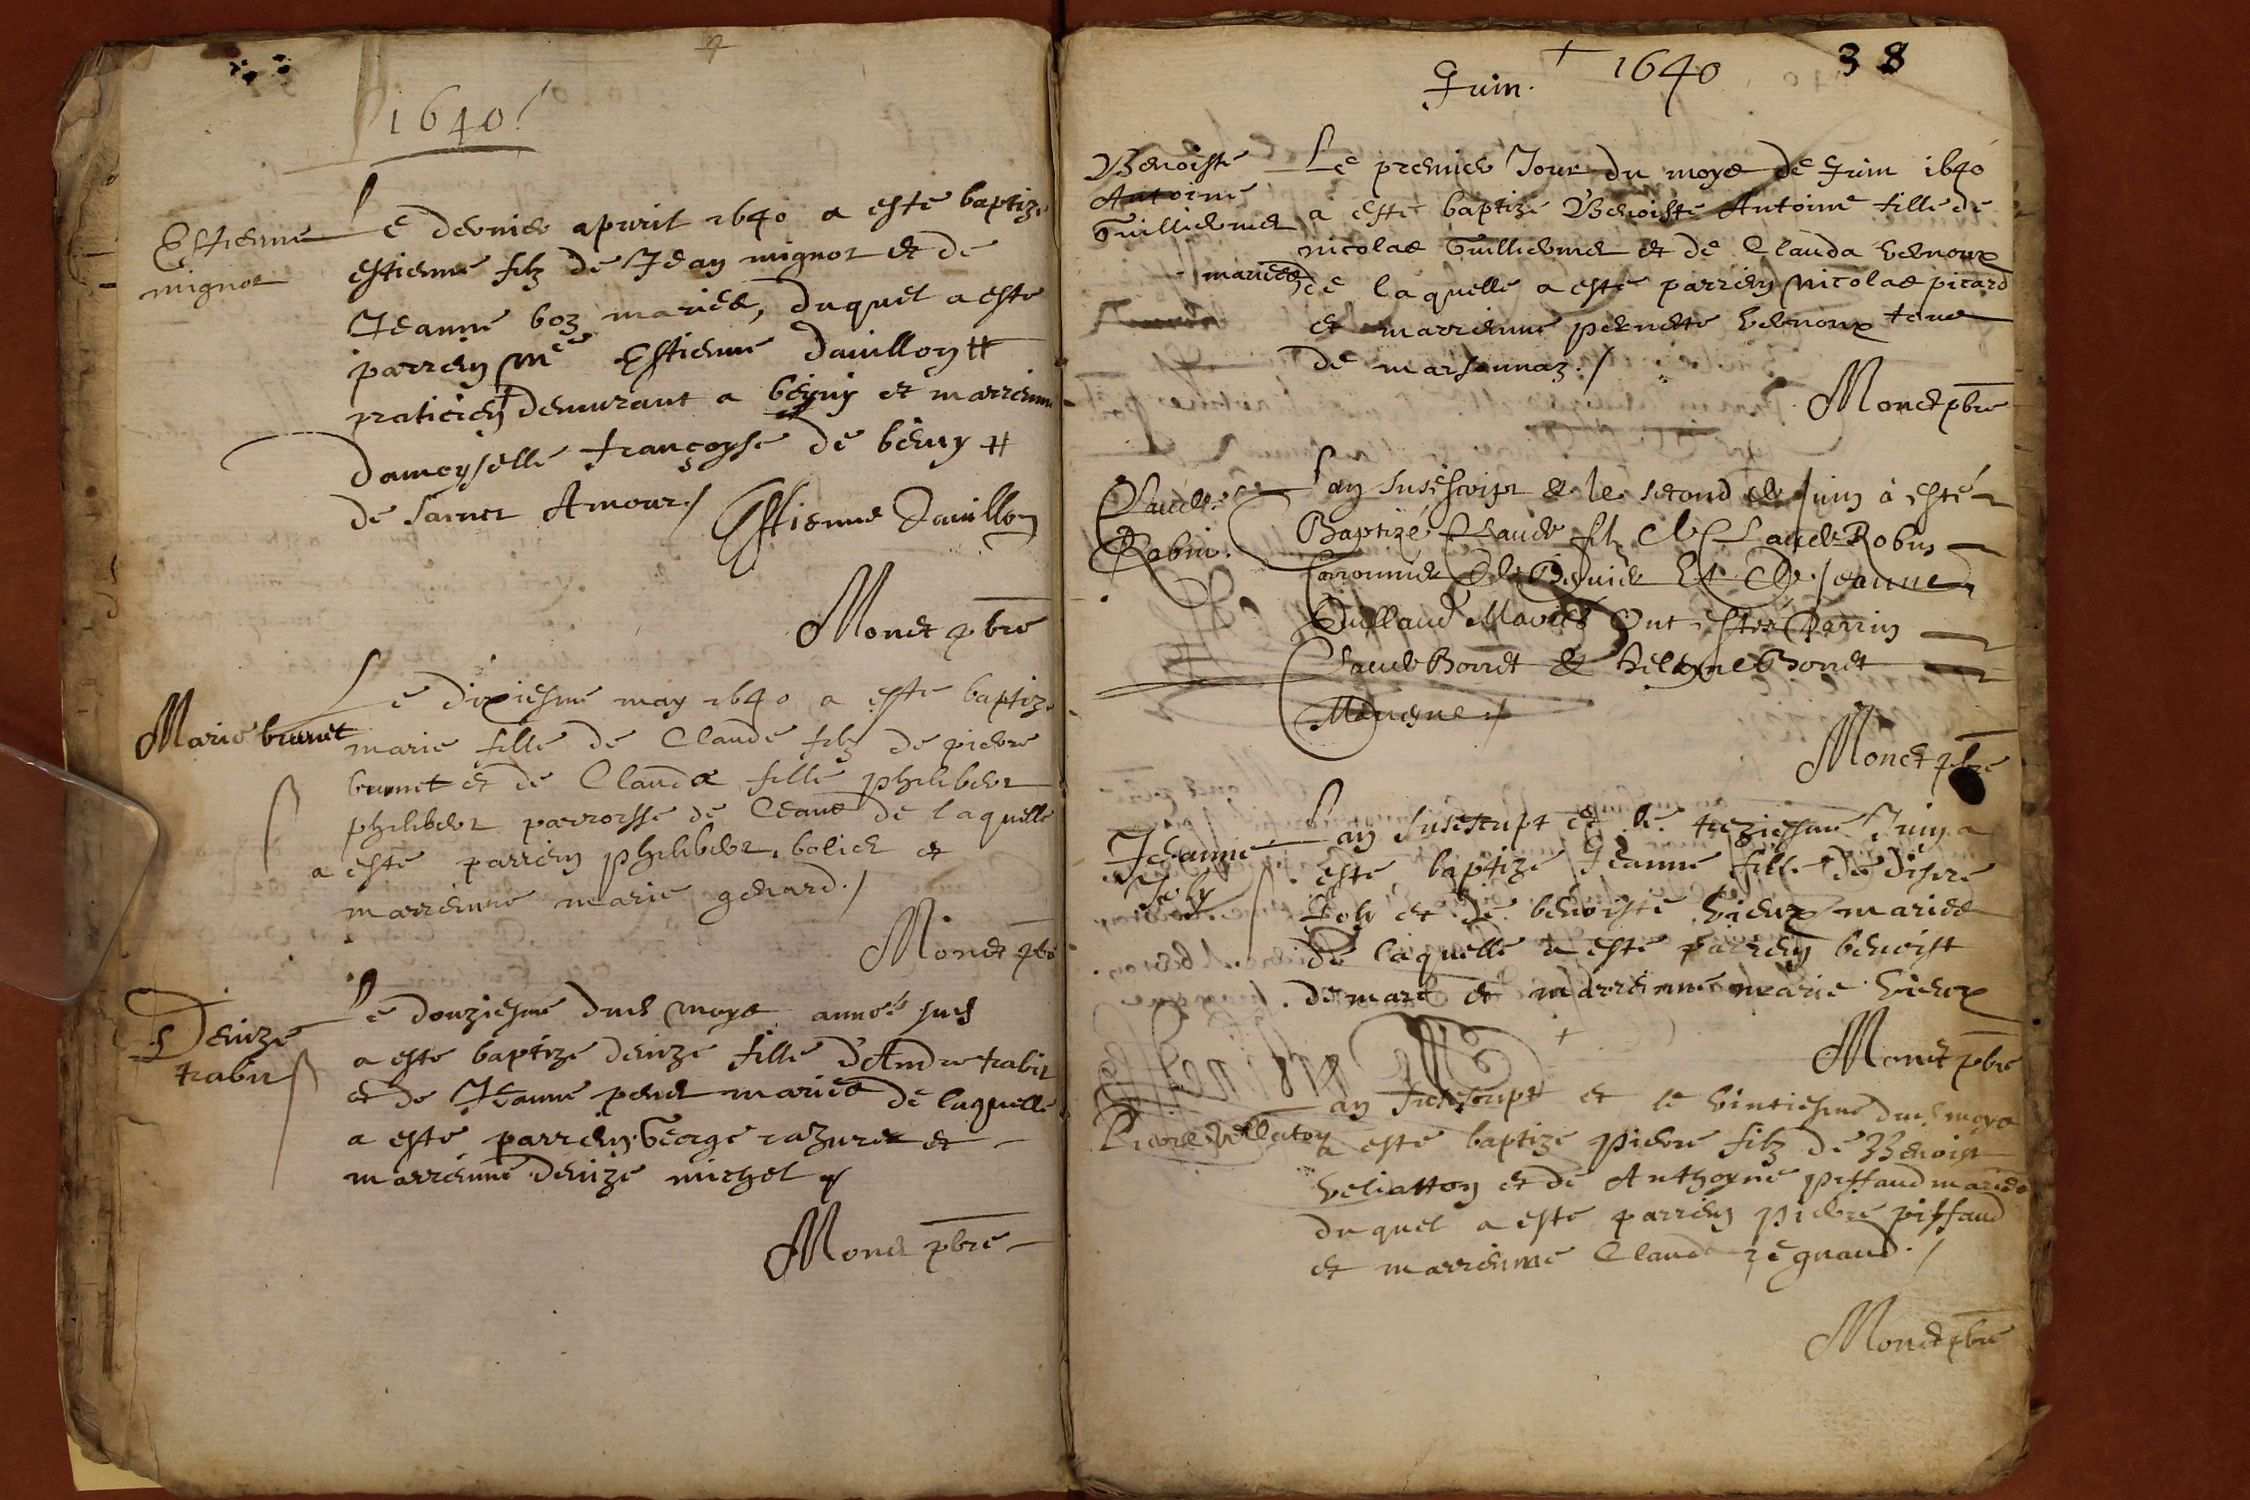 1640
Estienne
mignot
Le dernier apvril 1640 a este baptize
estienne filz de Jean mignot et de
Jeanne boz mariés, duquel a esté
parrein Me Estienne Davillon
praticien demeurant a et marrienne
Damoyselle francoyse de beny
de sainct Amour /
Estienne Davillon
Monet pbre
Marie brunet
Le dixiesme may 1640 a este baptize
marie fille de Claude filz de pierre
brunet et de Clauda fille philibert
philibert parroisse de Ceans de laquelle
a este parrein philibert bolier et
marrienne marie genard /
Monet pbre
Denize
trabit
Le douziesme dud moys année sud
a este baptize denize fille d'Andre trabit
et de Jeanne penet mariés de laquelle
a este parrein George razuret et
marrienne denize michel
Monet pbre
Juin. 1640 38
Benoiste
Antoine
Guilliermet
Le premier Jour du moys de Juin 1640
a este baptizé Benoiste Antoine fille de
nicolas Guilliermet et de Clauda vernoux
mariés de laquelle a esté parrein nicolas picard
et marrienne pernette vernoux
de marsonnaz /
Monet pbre
Claude
Robin.
Lan susescript & le second de Juin a esté
Baptizé Claude filz de Claude Robin
de Et de Jeanne
Mariés Ont estés Parrin
Claude Borret & helayne Borret
Marrene /
Monet pbre
Jeanne
Joly
Lan susescript et le treziesme Juin a
este baptize Jeanne fille de disire
Joly et de benoiste vieux mariés
de laquelle a esté parrein benoist
demare et marrienne marie vieux
Monet pbre
Pierre Velliatton
Lan susescript et le vintiesme dud moys
a este baptize pierre filz de Benoist
veliatton et de Anthoyne piffaud mariés
duquel a este parrein pierre piffaud
et marrienne Clauda regnaud /
Monet pbre